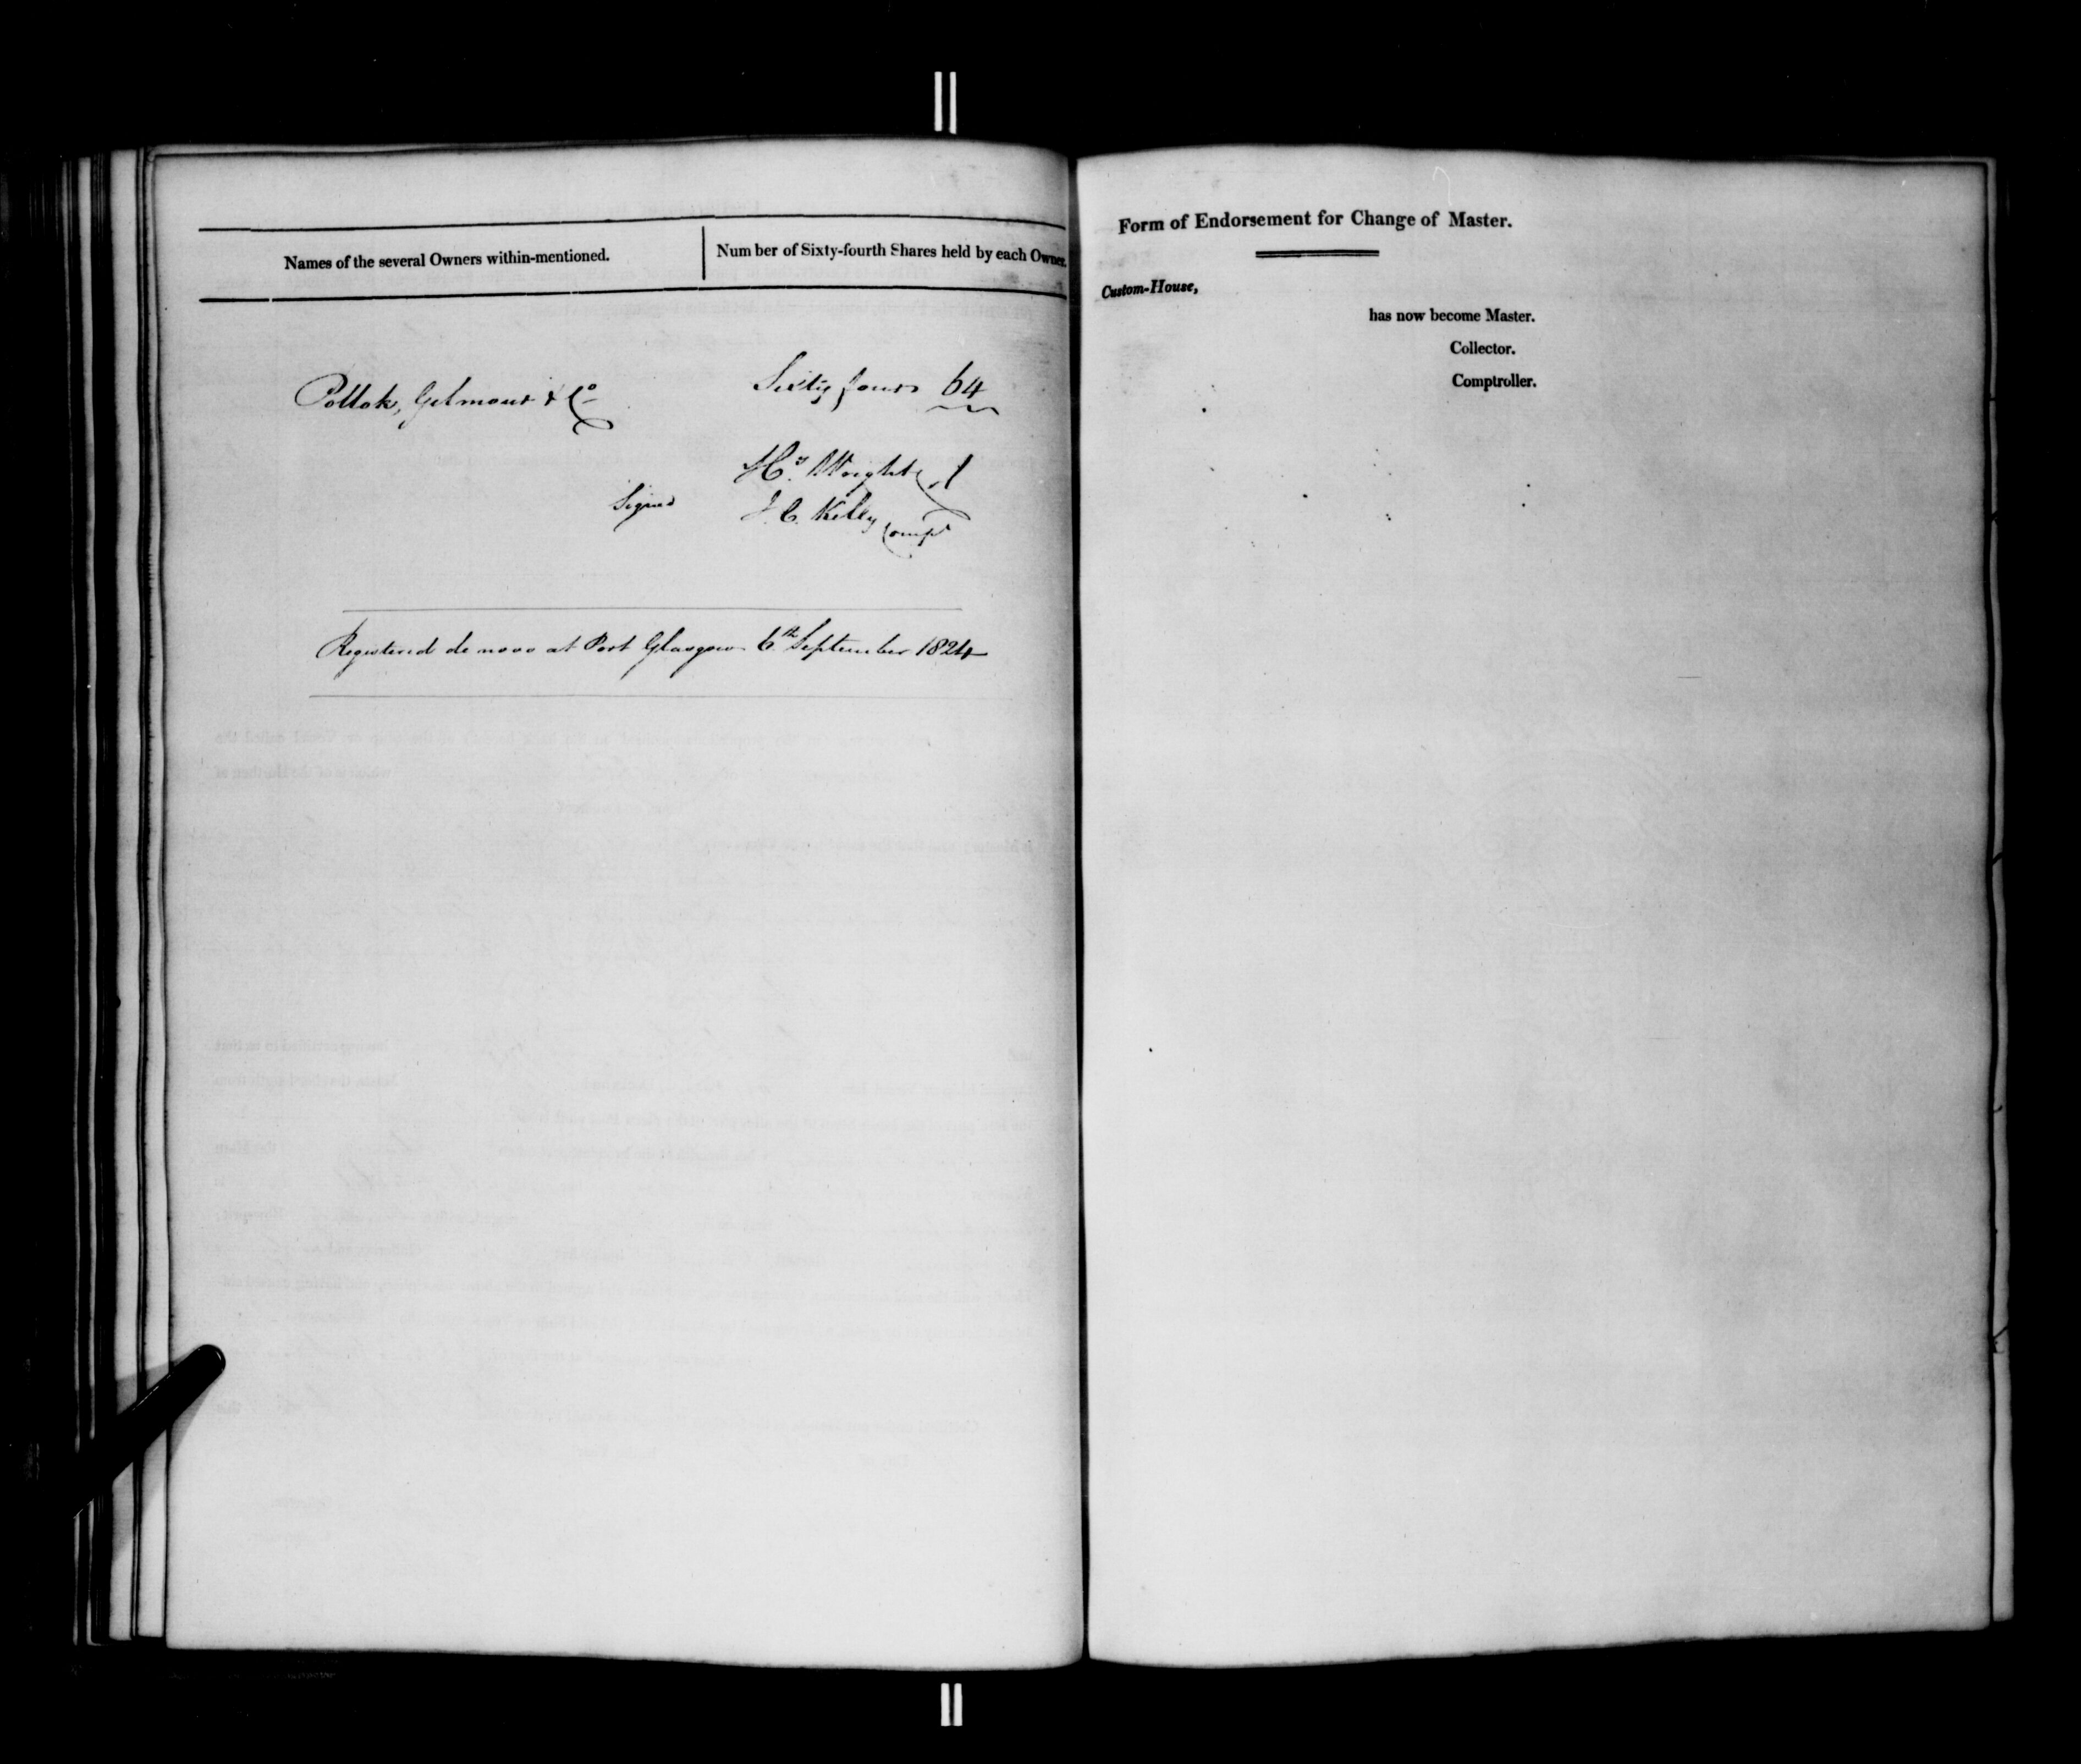 Names of the several Owners within-mentioned.
Number of Sixty-fourth Shares held by each Owner.
Pollok, Gilmour & Co
Sixty four 64
Signed
Hy. Wright
J. C. Kelly Compr
Registered de novo at Port Glasgow 6th September 1824
Form of Endorsement for Change of Master.
Custom-House,
has now become Master.
Collector.
Comptroller.